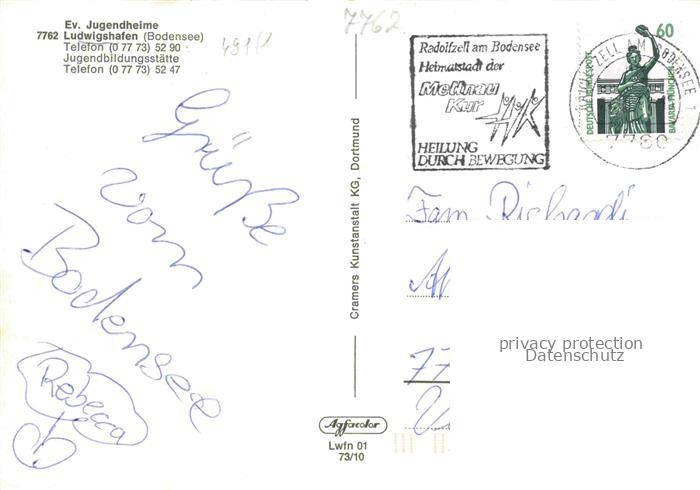 Ev. Jugendheime
7762 Ludwigshafen (Bodensee)
Telefon (0 77 73) 52 90
Jugendbildungsstätte
Telefon (0 77 73) 52 47
491/1
7762
Radolfzell am Bodensee
Heimatstadt der
Mettnau
Kur
HEILUNG
DURCH BEWEGUNG
60
DEUTSCHE BUNDESPOST
BAVARIA MÜNCHEN
RADOLFZELL AM BODENSEE 1
7760
Grüße
vom
Bodensee
Rebecca
Cramers Kunstanstalt KG, Dortmund
Agfacolor
Lwfn 01
73/10
Fam
77
privacy protection
Datenschutz